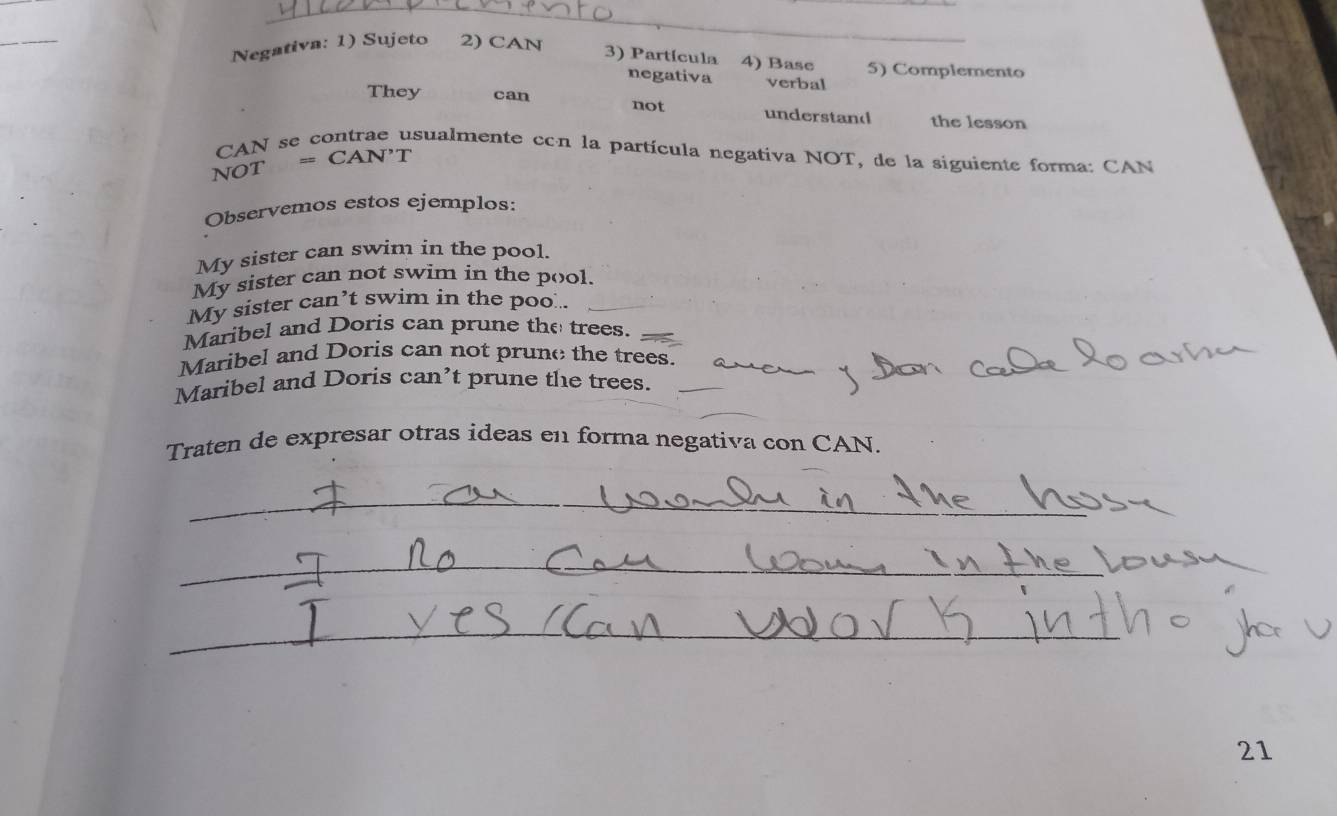 Negativa: 1) Sujeto 2) CAN 3) Partícula negativa 4) Base verbal 5) Complemento
They can not understand the lesson
CAN se contrae usualmente con la partícula negativa NOT, de la siguiente forma: CAN
NOT = CAN'T
Observemos estos ejemplos:
My sister can swim in the pool.
My sister can not swim in the pool.
My sister can't swim in the poo..
Maribel and Doris can prune the trees.
Maribel and Doris can not prune the trees.
Maribel and Doris can't prune the trees.
y
Traten de expresar otras ideas en forma negativa con CAN.
I in the
I no in the
I yes can work in tho
21